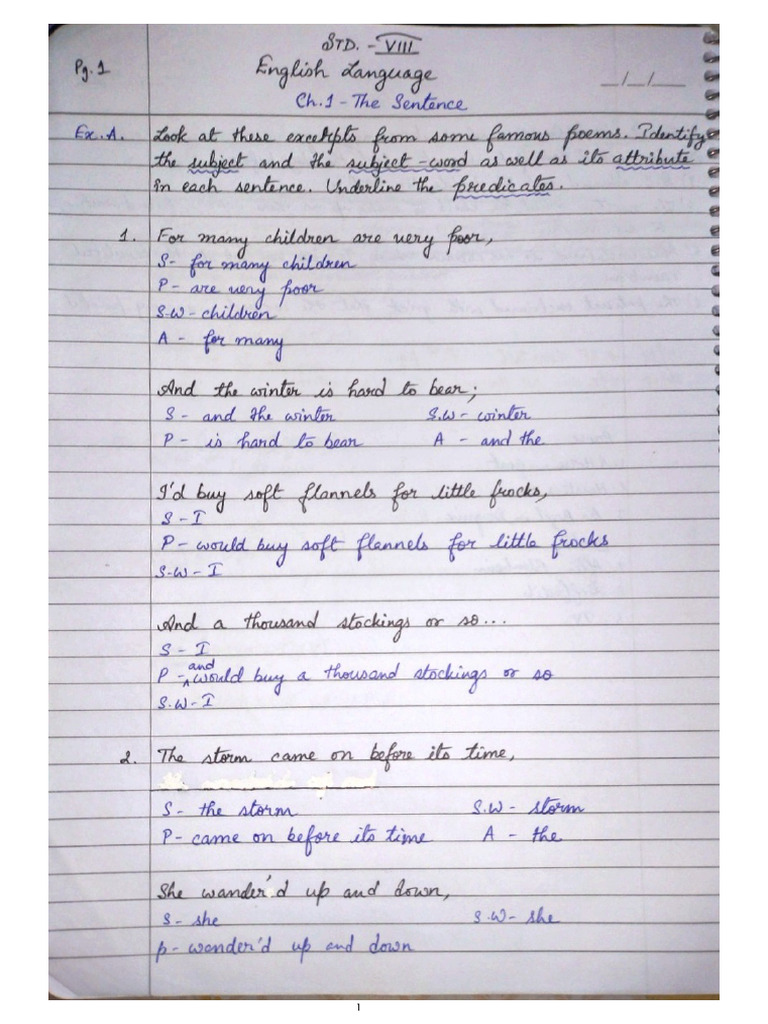 STD. - VIII
Pg. 1
English Language
_/_/__
Ch.1 - The Sentence
Ex. A. Look at these excerpts from some famous poems. Identify
the subject and the subject-word as well as its attribute
in each sentence. Underline the predicates.
1. For many children are very poor,
S - for many children
P - are very poor
S.W - children
A - for many
And the winter is hard to bear;
S - and the winter S.W - winter
P - is hard to bear A - and the
I'd buy soft flannels for little frocks,
S - I
P - would buy soft flennels for little frocks
S.W - I
And a thousand stockings or so...
S - I
P - and would buy a thousand stockings or so
S.W - I
2. The storm came on before its time,
S - the storm S.W - storm
P - came on before its time A - the
She wander'd up and down,
S - she S.W - she
p - wander'd up and down
1